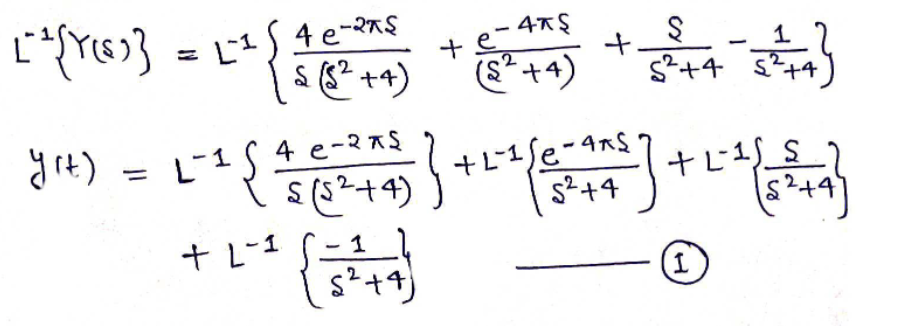 L⁻¹{Y(s)} = L⁻¹{ 4e^{-2πs} / s(s²+4) + e^{-4πs} / (s²+4) + s / s²+4 - 1 / s²+4 }
y(t) = L⁻¹{ 4e^{-2πs} / s(s²+4) } + L⁻¹{ e^{-4πs} / s²+4 } + L⁻¹{ s / s²+4 }
+ L⁻¹{ -1 / s²+4 } ——— ①